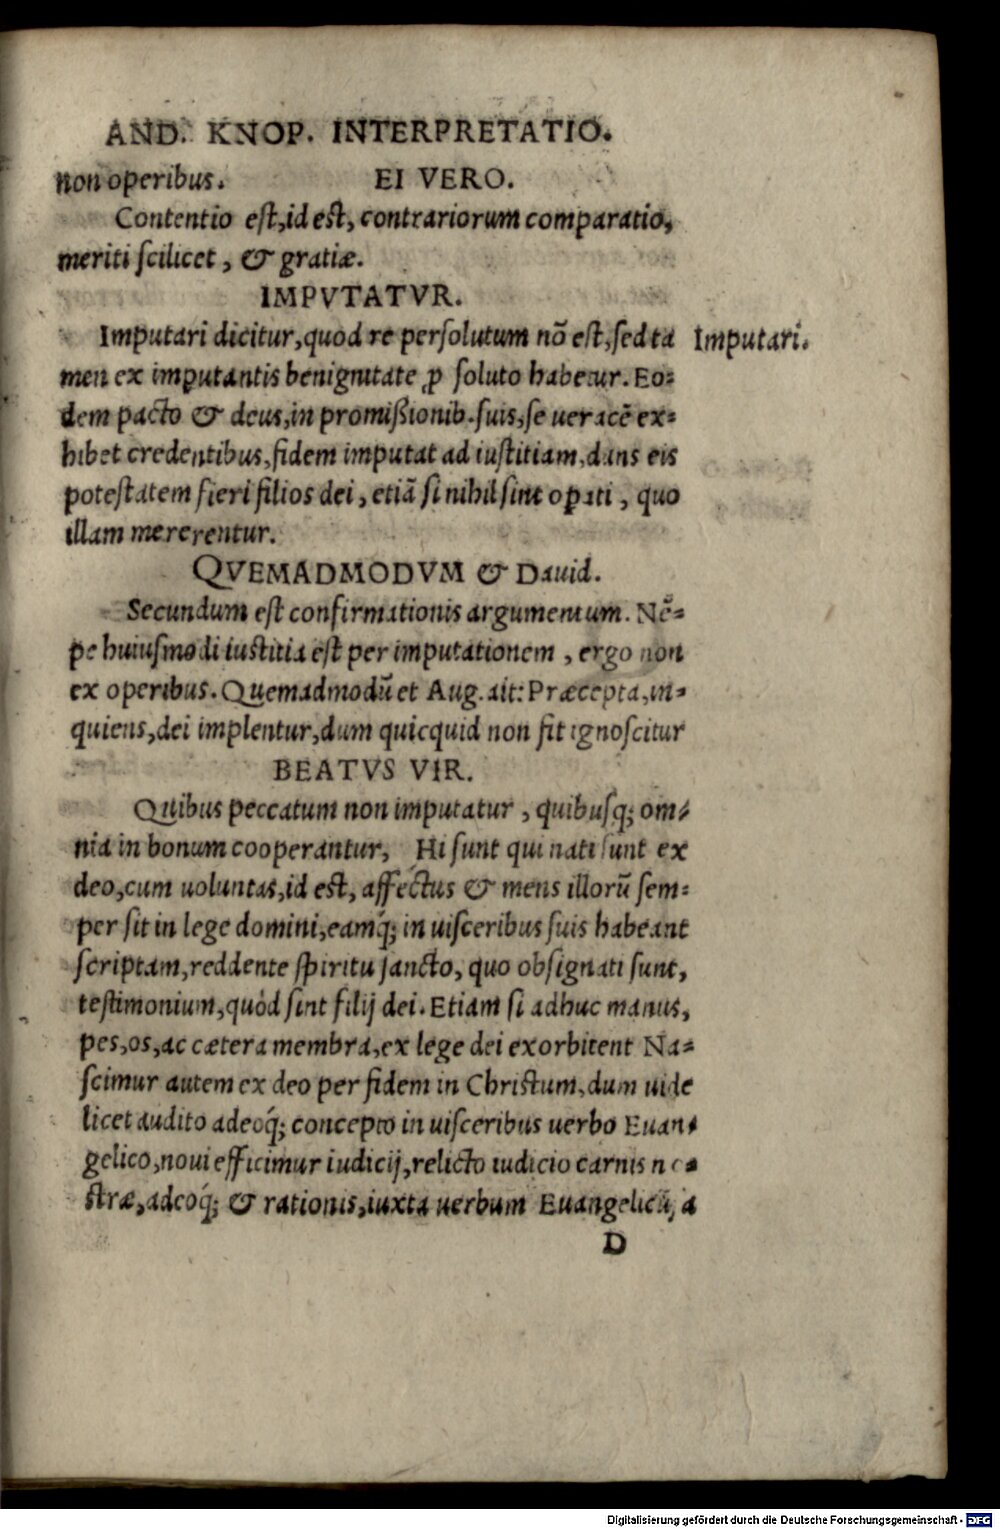 AND. KNOP. INTERPRETATIO.
non operibus. EI VERO.
Contentio est, id est, contrariorum comparatio,
meriti scilicet, & gratiæ.
IMPVTATVR.
Imputari dicitur, quod re persolutum nō est, sed ta
Imputari.
men ex imputantis benignitate ꝓ soluto habetur. Eo-
dem pacto & deus, in promißionib. suis, se ueracē ex-
hibet credentibus, fidem imputat ad iustitiam, dans eis
potestatem fieri filios dei, etiā si nihil sint oꝑati, quo
illam mererentur.
QVEMADMODVM & Dauid.
Secundum est confirmationis argumentum. Nē-
pe huiusmodi iustitia est per imputationem, ergo non
ex operibus. Quemadmodū et Aug. ait: Præcepta, in-
quiens, dei implentur, dum quicquid non fit ignoscitur
BEATVS VIR.
Quibus peccatum non imputatur, quibusq; om-
nia in bonum cooperantur, Hi sunt qui nati sunt ex
deo, cum uoluntas, id est, affectus & mens illorū sem-
per sit in lege domini, eamq́; in uisceribus suis habeant
scriptam, reddente spiritu sancto, quo obsignati sunt,
testimonium, quòd sint filij dei. Etiam si adhuc manus,
pes, os, ac cætera membra, ex lege dei exorbitent Na-
scimur autem ex deo per fidem in Christum, dum uide
licet audito adeoq́; concepto in uisceribus uerbo Euan-
gelico, noui efficimur iudicij, relicto iudicio carnis no-
stræ, adeoq́; & rationis, iuxta uerbum Euangelicū, a
D
Digitalisierung gefördert durch die Deutsche Forschungsgemeinschaft - DFG